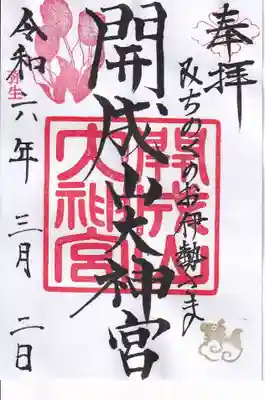 奉拝
みちのくのお伊勢さま
開成山大神宮
開成山大神宮
令和六年三月二日
弥生